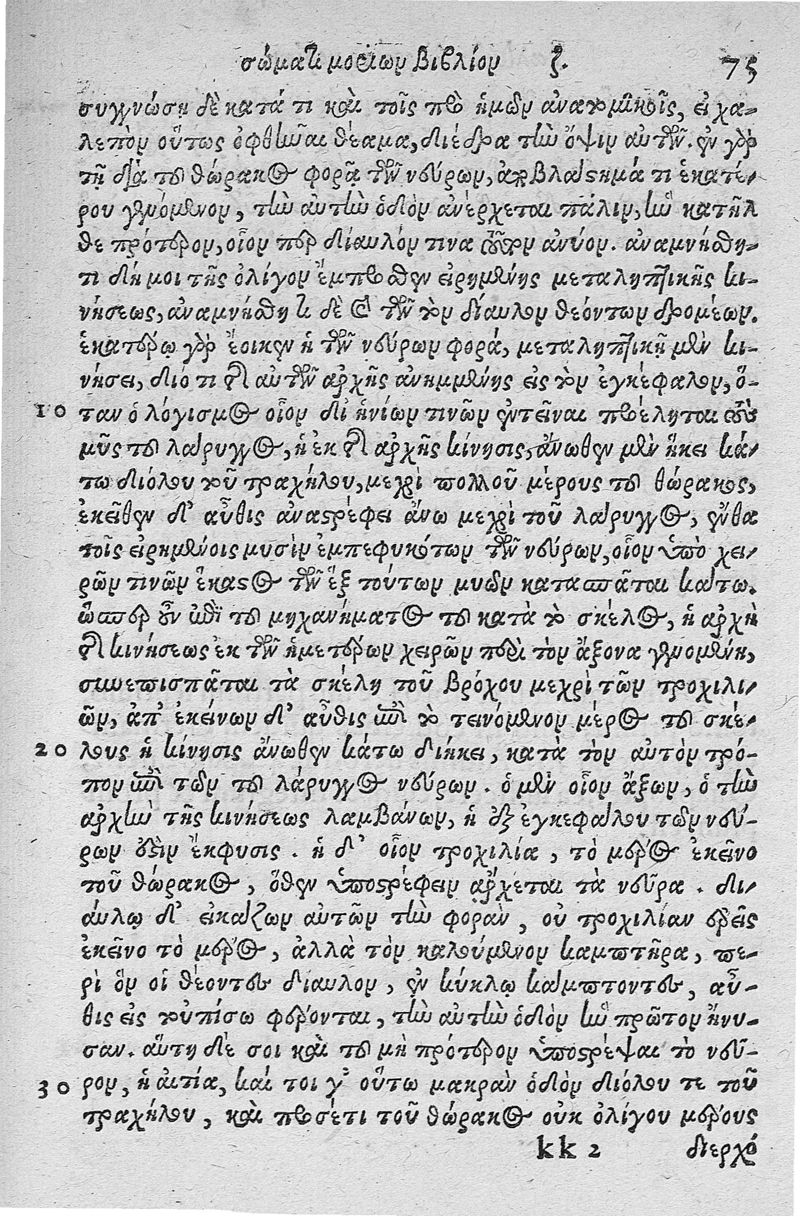 σώματι μορίων βιβλίον ζ. 75
συγγνώσῃ δὲ κατά τι καὶ τοῖς πρὸ ἡμῶν ἀνατομικοῖς, εἰ χα-
λεπὸν οὕτως ὀφθῆναι θέαμα, διέδρα τὴν ὄψιν αὐτῶν. ἐν γὰρ
τῇ διὰ τοῦ θώρακος φορᾷ τῶν νεύρων, ἀποβλαστήματι ἑκατέ-
ρου γενόμενον, τὴν αὐτὴν ὁδὸν ἀνέρχεται πάλιν, ἣν κατῆλ
θε πρότερον, οἷόν περ δίαυλόν τινα τοῦτον ἀνύον. ἀναμνήσθη-
τι δή μοι τῆς ὀλίγον ἔμπροσθεν εἰρημένης μεταληπτικῆς κι-
νήσεως, ἀναμνήσθητι δὲ καὶ τῶν τὸν δίαυλον θεόντων δρομέων.
ἑκατέρῳ γὰρ ἔοικεν ἡ τῶν νεύρων φορά, μεταληπτικῇ μὲν κι-
νήσει, διότι τῆς αὐτῶν ἀρχῆς ἀνημμένης εἰς τὸν ἐγκέφαλον, ὅ-
10 ταν ὁ λόγισμος οἷον δι' ἡνίων τινῶν ἐντεῖναι προέληται τοὺς
μῦς τοῦ λάρυγγος, ἡ ἐκ τῆς ἀρχῆς κίνησις, ἄνωθεν μὲν ἥκει κά-
τω διόλου τοῦ τραχήλου, μέχρι πολλοῦ μέρους τοῦ θώρακος,
ἐκεῖθεν δ' αὖθις ἀναστρέφει ἄνω μέχρι τοῦ λάρυγγος, ἔνθα
τοῖς εἰρημένοις μυσὶν ἐμπεφυκότων τῶν νεύρων, οἷον ὑπὸ χει-
ρῶν τινῶν ἕκαστος τῶν ἓξ τούτων μυῶν κατασπᾶται κάτω.
ὥσπερ οὖν ἐπὶ τοῦ μηχανήματος τοῦ κατὰ τὸ σκέλος, ἡ ἀρχὴ
τῆς κινήσεως ἐκ τῶν ἡμετέρων χειρῶν περὶ τὸν ἄξονα γενομένη,
συνεπισπᾶται τὰ σκέλη τοῦ βρόχου μέχρι τῶν τροχιλι-
ῶν, ἀπ' ἐκείνων δ' αὖθις ἐπὶ τὸ τεινόμενον μέρος τοῦ σκέ-
20 λους ἡ κίνησις ἄνωθεν κάτω διήκει, κατὰ τὸν αὐτὸν τρό-
πον ἐπὶ τῶν τοῦ λάρυγγος νεύρων. ὁ μὲν οἷον ἄξων, ὁ τὴν
ἀρχὴν τῆς κινήσεως λαμβάνων, ἡ ἐξ ἐγκεφάλου τῶν νεύ-
ρων ἐστὶν ἔκφυσις. ἡ δ' οἷον τροχιλία, τὸ μέρος ἐκεῖνο
τοῦ θώρακος, ὅθεν ὑποστρέφειν ἄρχεται τὰ νεῦρα. δι-
άυλῳ δ' εἰκάζων αὐτῶν τὴν φορὰν, οὐ τροχιλίαν ἐρεῖς
ἐκεῖνο τὸ μέρος, ἀλλὰ τὸν καλούμενον καμπτῆρα, πε-
ρὶ ὃν οἱ θέοντες δίαυλον, ἐν κύκλῳ κάμπτοντες, αὖ-
θις εἰς τοὐπίσω φέρονται, τὴν αὐτὴν ὁδὸν ἣν πρῶτον ἤνυ-
σαν. αὕτη δέ σοι καὶ τοῦ μὴ πρότερον ὑποστρέψαι τὸ νεῦ-
30 ρον, ἡ αἰτία, καί τοι γ' οὕτω μακρὰν ὁδὸν διόλου τε τοῦ
τραχήλου, καὶ προσέτι τοῦ θώρακος οὐκ ὀλίγου μέρους
kk 2 διερχό